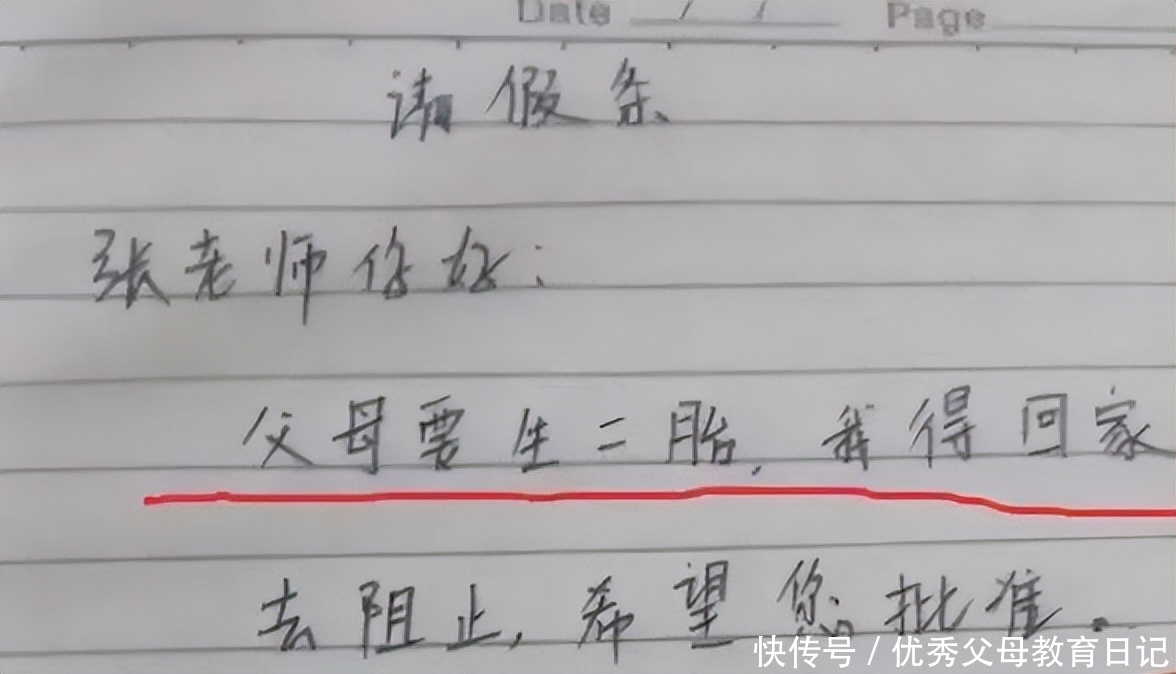 Date / / Page
请假条
张老师你好:
父母要生二胎,我得回家
去阻止,希望您批准.
快传号/优秀父母教育日记